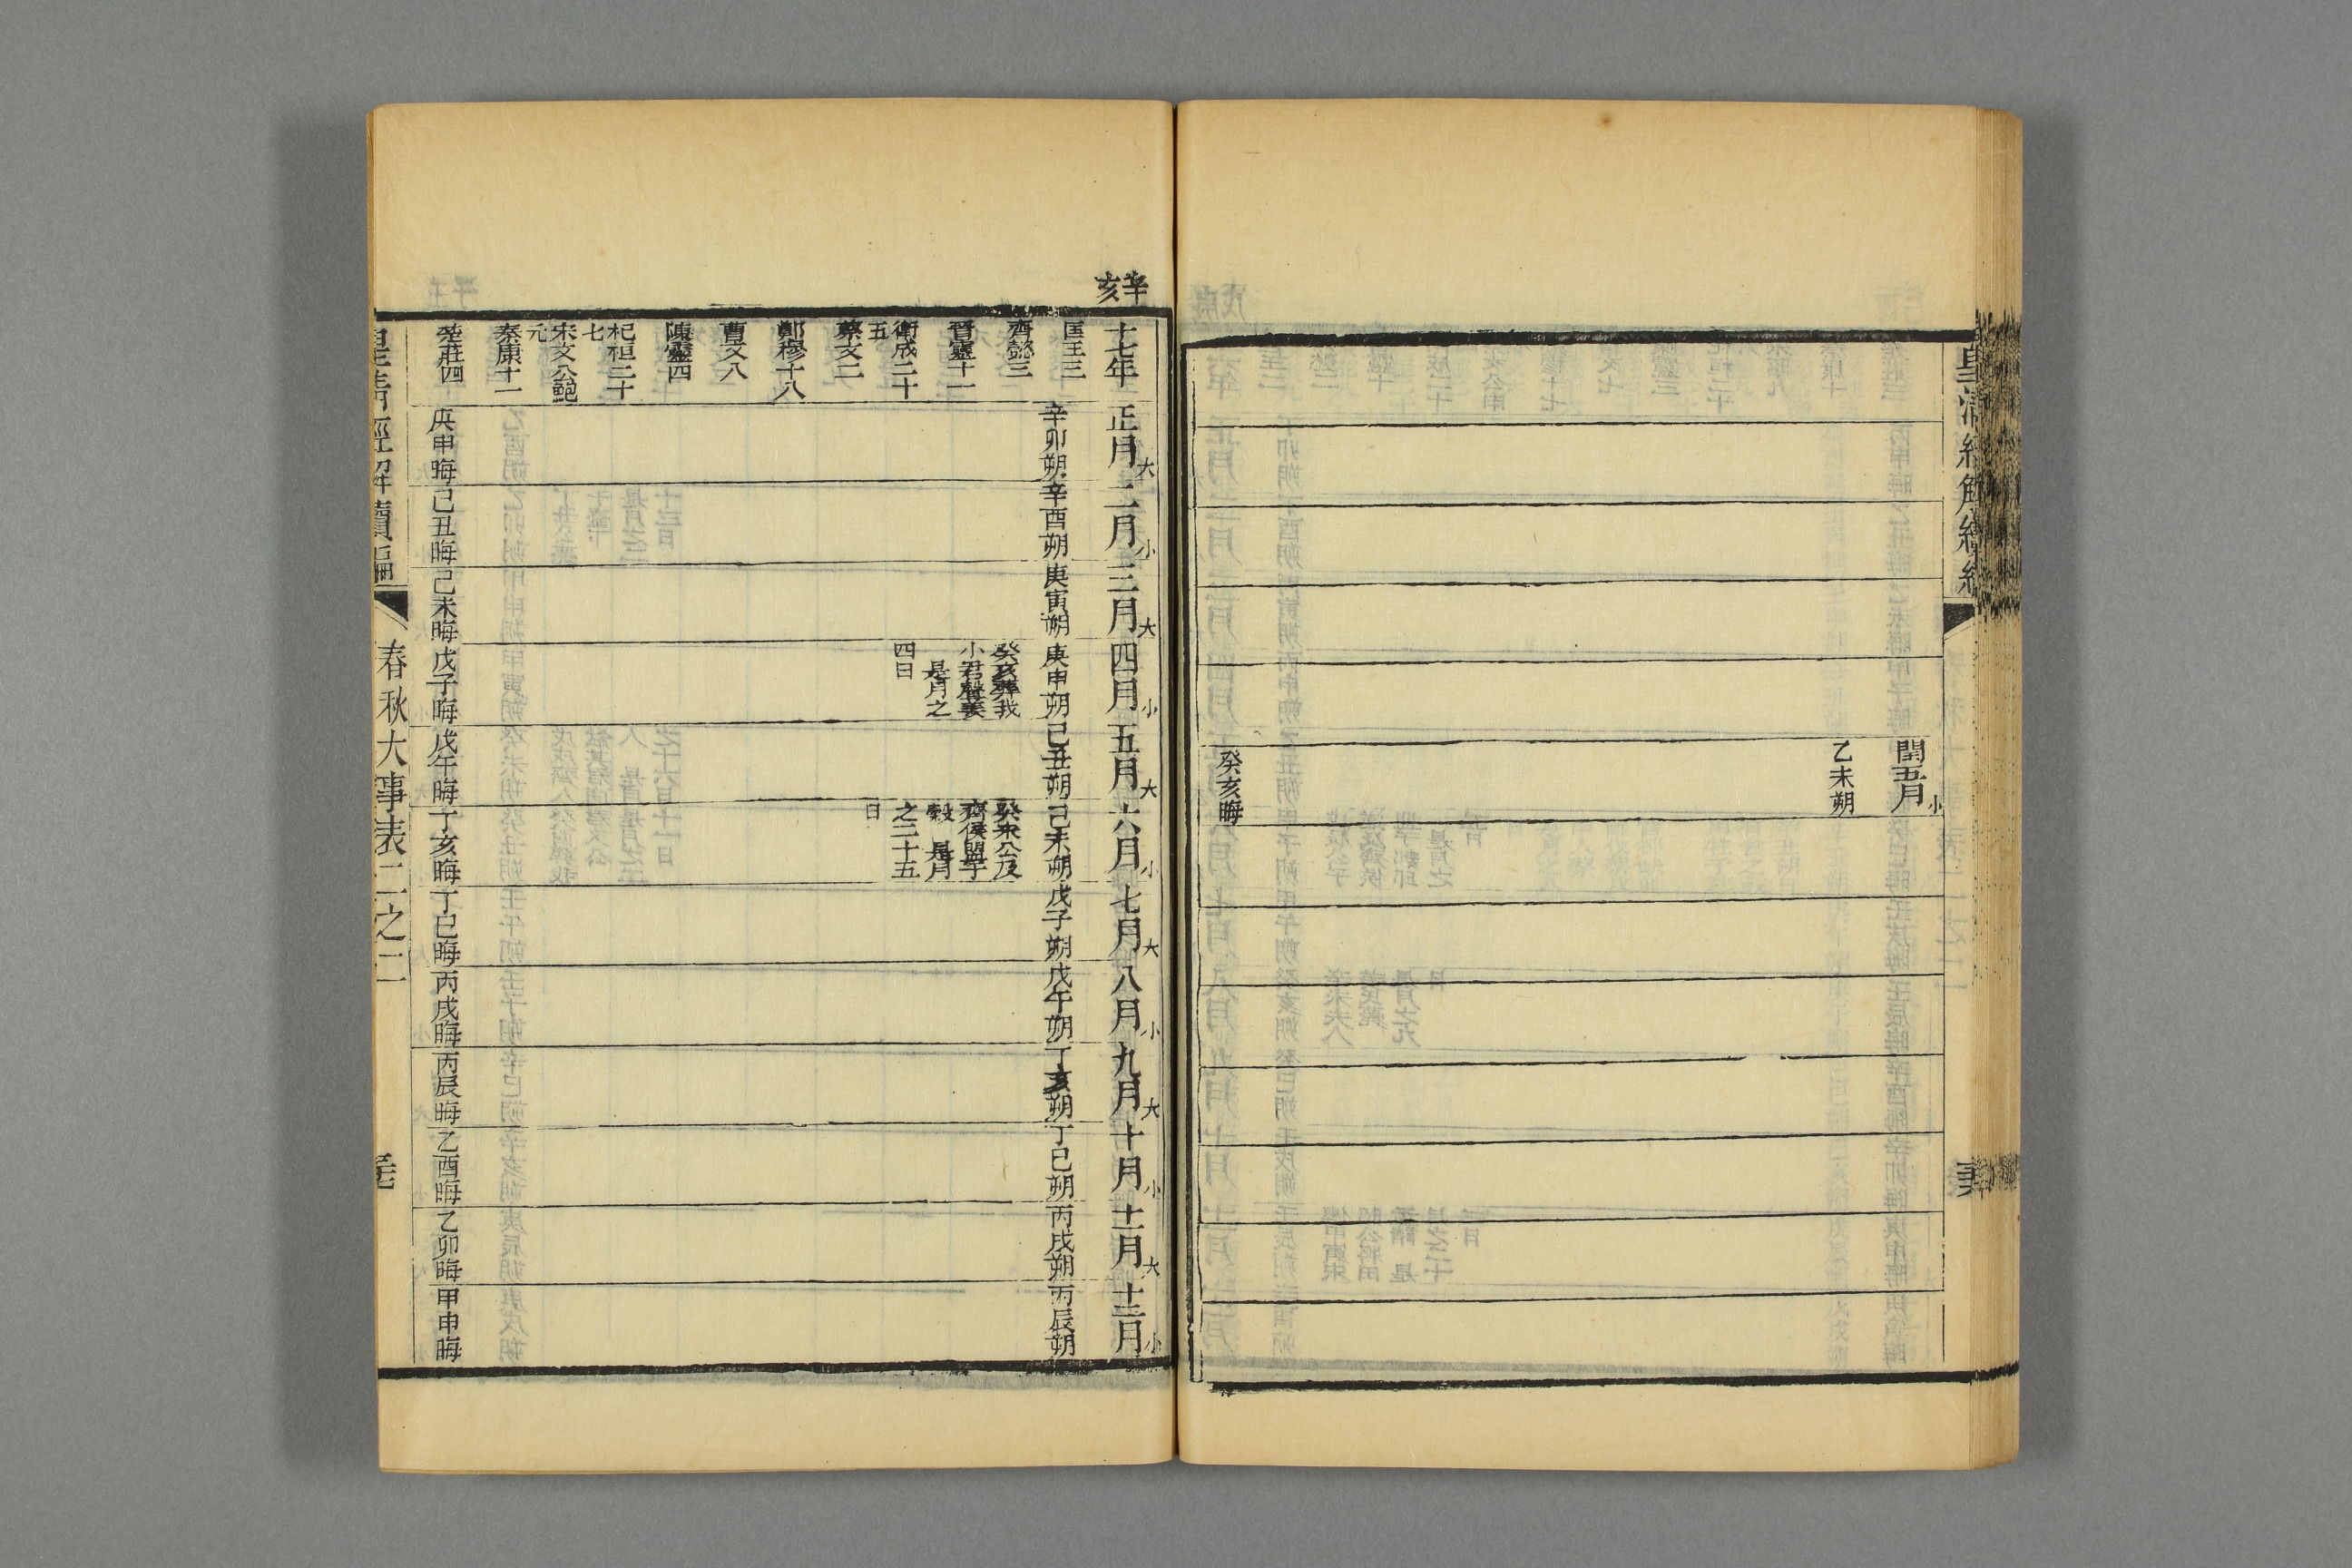 皇清經解續編
閏五月小
乙未朔
癸亥晦
辛亥
十七年
匡王三
齊懿三
晉靈十一
衛成二十
五
蔡文二
鄭穆十八
曹文八
陳靈四
杞桓二十
七
宋文公鮑
元
秦康十一
楚莊四
正月大
辛卯朔
庚申晦
二月小
辛酉朔
己丑晦
三月大
庚寅朔
己未晦
四月小
庚申朔
癸亥葬我
小君聲姜
是月之
四日
戊子晦
五月大
己丑朔
戊午晦
六月小
己未朔
癸未公及
齊侯盟于
穀 是月
之二十五
日
丁亥晦
七月大
戊子朔
丁巳晦
八月小
戊午朔
丙戌晦
九月大
丁亥朔
丙辰晦
十月小
丁巳朔
乙酉晦
十一月大
丙戌朔
乙卯晦
十二月小
丙辰朔
甲申晦
皇清經解續編
春秋大事表二之二